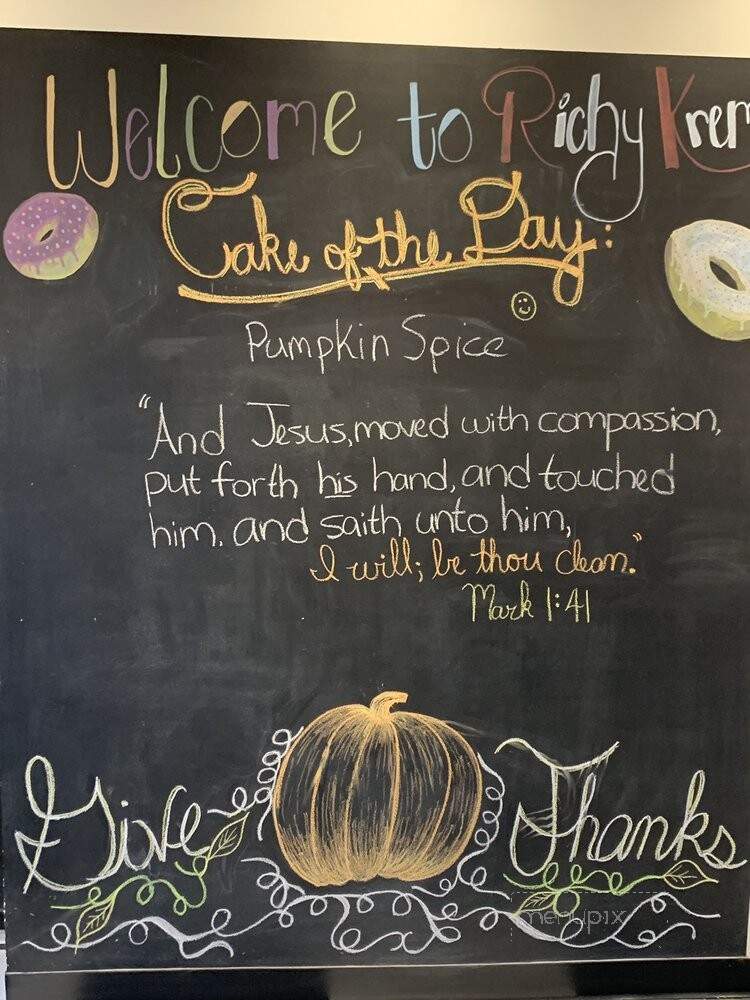 Welcome to Richy Krem
Cake of the Day:
Pumpkin Spice
"And Jesus, moved with compassion,
put forth his hand, and touched
him. and saith unto him,
I will; be thou clean."
Mark 1:41
Give Thanks
menupix